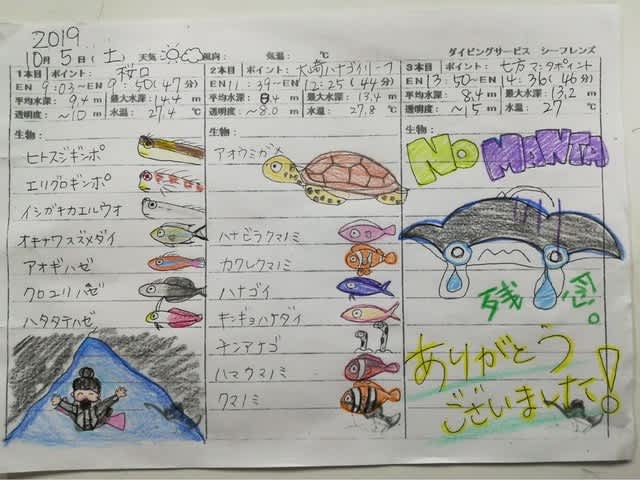 2019
10月5日(土) 天気: 風向: 気温: ℃ ダイビングサービス シーフレンズ
1本目 ポイント: 桜口
EN 9:03〜EN 9:50(47分)
平均水深: 9.4 m 最大水深: 14.4 m
透明度: 〜10 m 水温: 27.4 ℃
生物:
ヒトスジギンポ
エリグロギンポ
イシガキカエルウオ
オキナワスズメダイ
アオギハゼ
クロユリハゼ
ハタタテハゼ
2本目 ポイント: 大崎ハナゴイリーフ
EN 11:39〜EN 12:25(44分)
平均水深: 8.4 m 最大水深: 13.4 m
透明度: 〜8.0 m 水温: 27.8 ℃
生物:
アオウミガメ
ハナビラクマノミ
カクレクマノミ
ハナゴイ
キンギョハナダイ
チンアナゴ
ハマクマノミ
クマノミ
3本目 ポイント: 七方マンタポイント
EN 13:50〜EN 14:36(46分)
平均水深: 8.4 m 最大水深: 13.2 m
透明度: 〜15 m 水温: 27 ℃
生物:
NO MANTA
残念。
ありがとう
ございました!